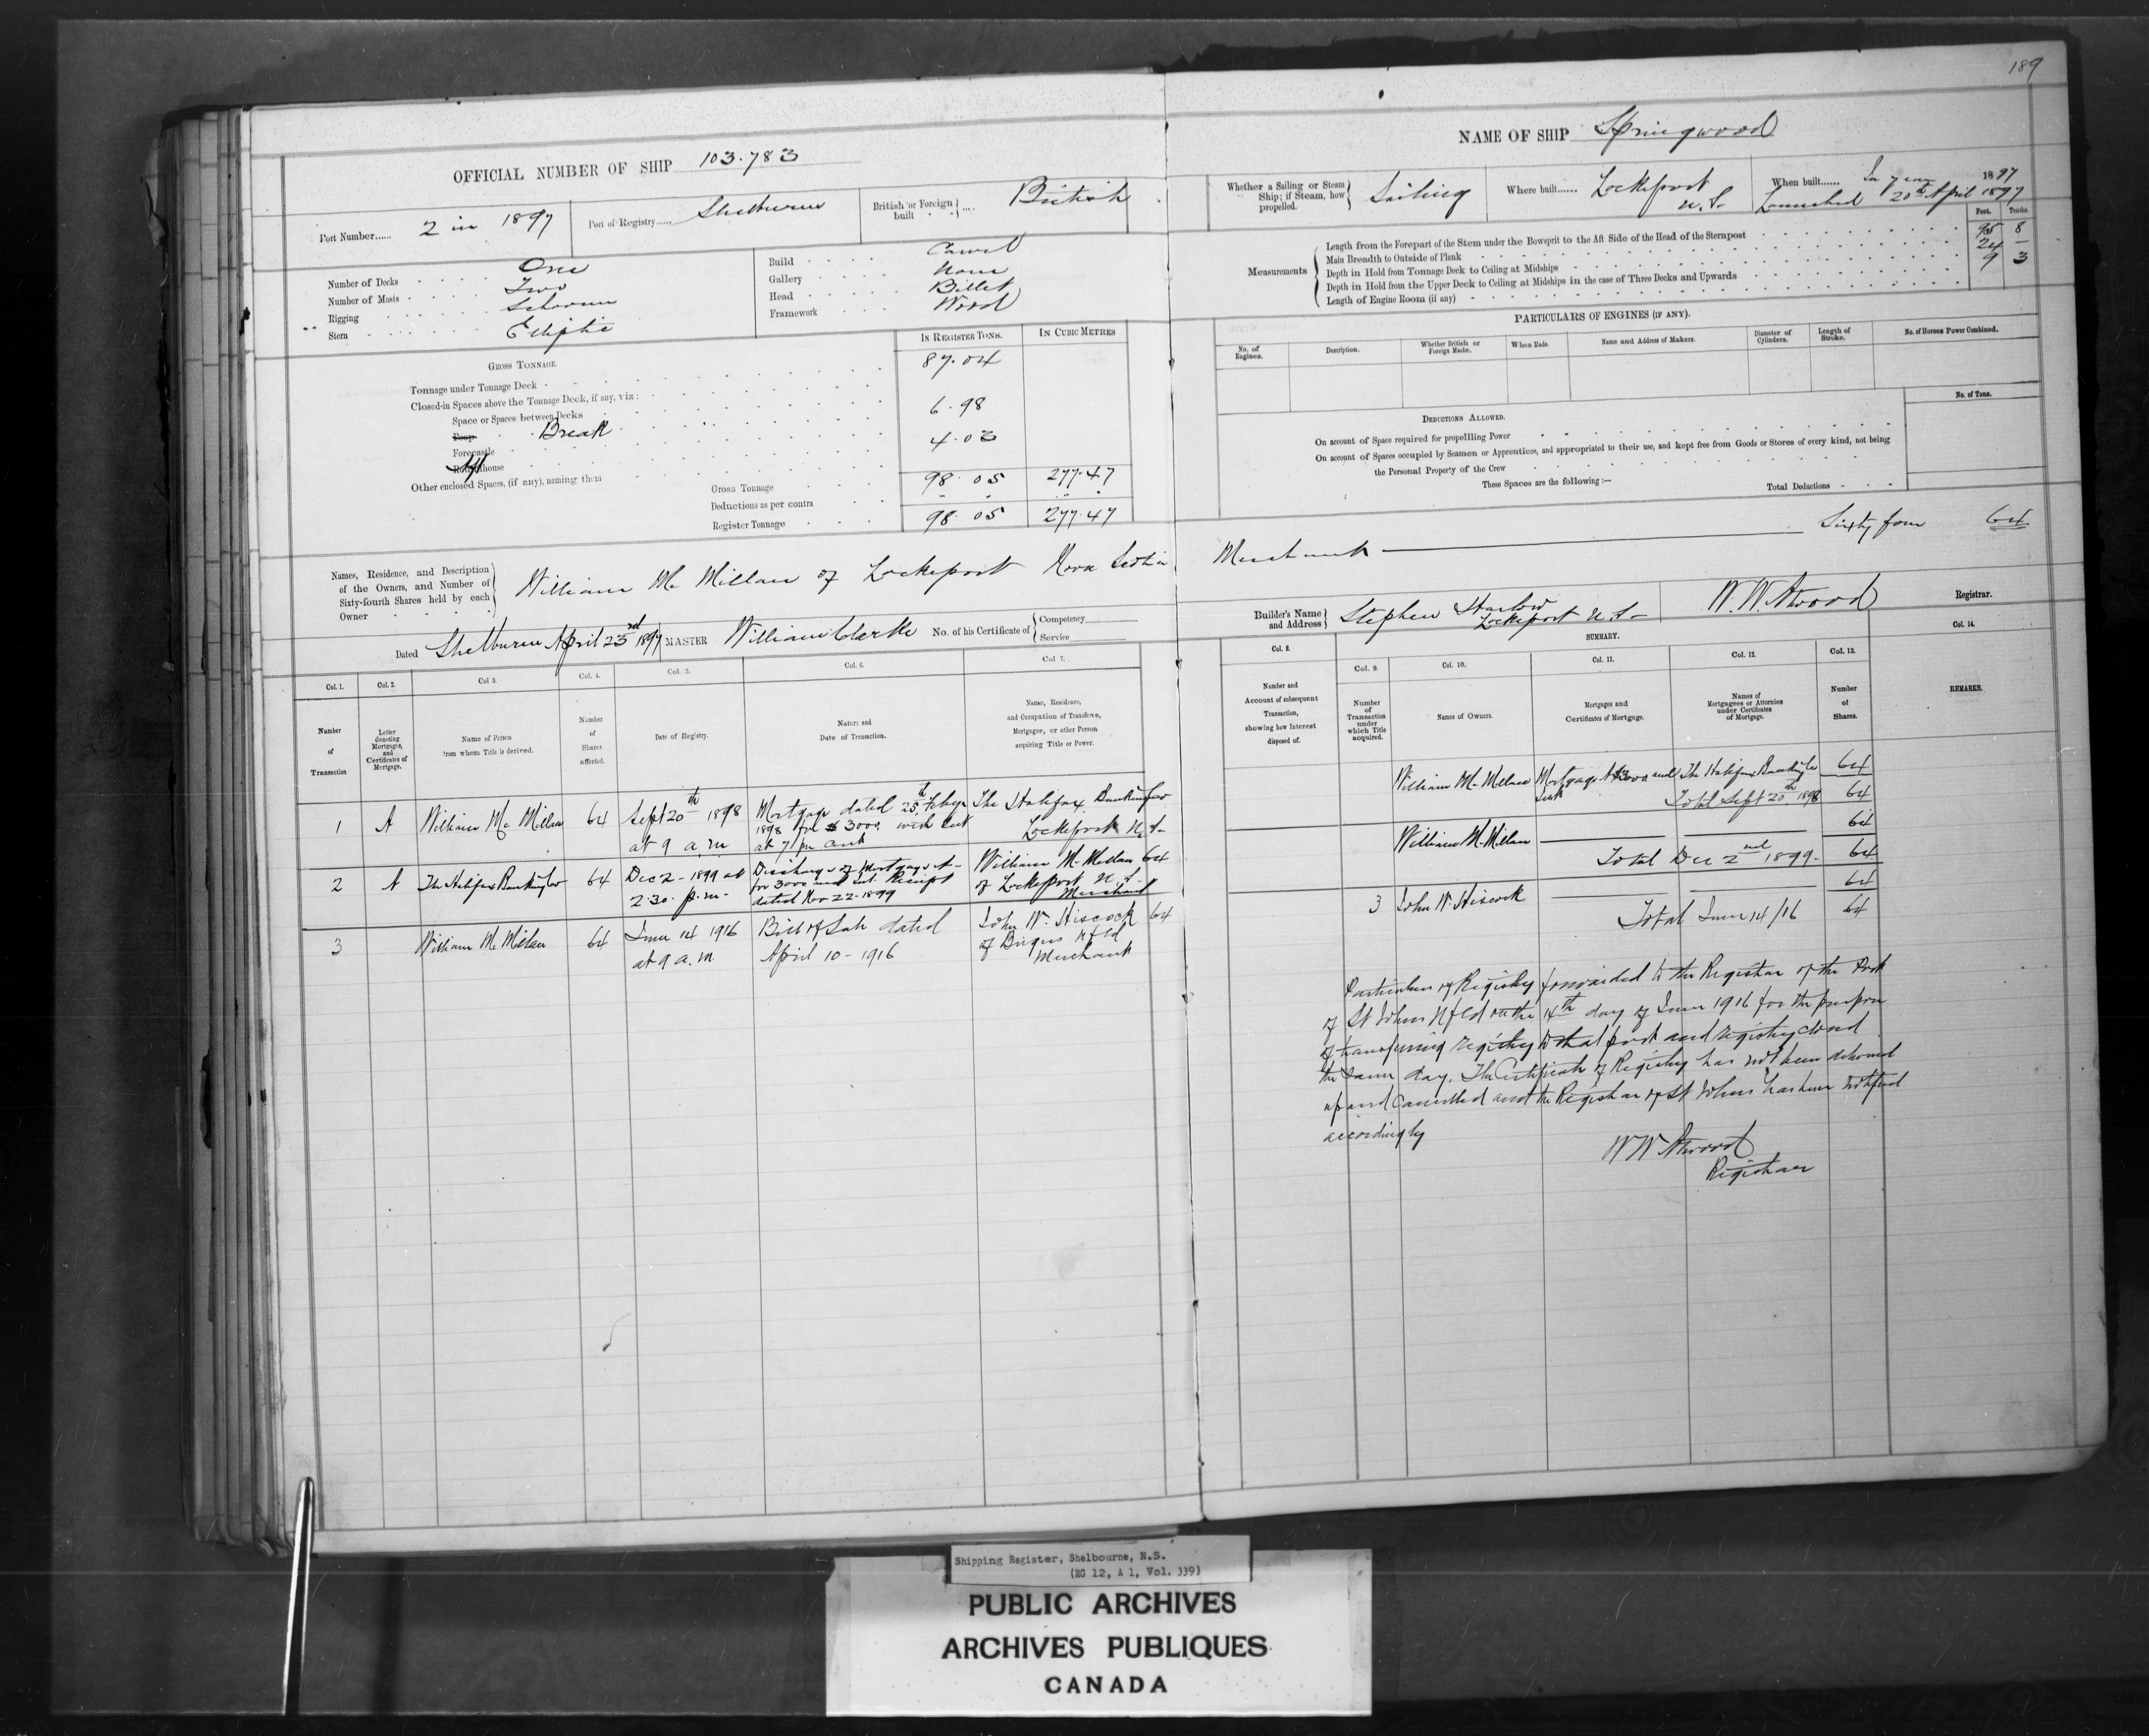 189
OFFICIAL NUMBER OF SHIP 103.783
Port Number...... 2 in 1897
Port of Registry...... Shelburne
British or Foreign built .... British
Number of Decks One
Number of Masts Two
Rigging Schooner
Stern Elliptic
Build Carvel
Gallery None
Head Billet
Framework Wood
GROSS TONNAGE.
IN REGISTER TONS.
IN CUBIC METRES
Tonnage under Tonnage Deck 87.04
Closed-in Spaces above the Tonnage Deck, if any, viz:
Space or Spaces between Decks
Poop Break 6.98
Forecastle
Roundhouse 4.03
Other enclosed Spaces, (if any), naming them
Gross Tonnage 98.05 277.47
Deductions as per contra
Register Tonnage 98.05 277.47
Names, Residence, and Description
of the Owners, and Number of
Sixty-fourth Shares held by each
Owner
William McMillan of Lockeport Nova Scotia
Dated Shelburne April 23rd 1897 MASTER William Clarke No. of his Certificate of Competency Service
Col. 1. Number of Transaction
Col. 2. Letter denoting Mortgages, and Certificates of Mortgage.
Col 3. Name of Person from whom Title is derived.
Col. 4. Number of Shares affected.
Col. 5. Date of Registry.
Col. 6. Nature and Date of Transaction.
Col 7. Name, Residence, and Occupation of Transferee, Mortgagee, or other Person acquiring Title or Power.
1 A William McMillan 64 Sept 20th 1898 Mortgage dated 25th Feby The Halifax Banking Co
at 9 a.m 1898 for $3000 with int Lockeport N.S.
at 7 pr cent
2 A The Halifax Banking Co 64 Dec 2 - 1899 at Discharge of Mortgage A William McMillan 64
2.30. p.m - for 3000 and Int. Receipt of Lockeport N.S.
dated Nov 22 - 1899 Merchant
3 William McMillan 64 June 14 1916 Bill of Sale dated John W. Hiscock 64
at 9 a.m April 10 - 1916 of Brigus Nfld
Merchant
NAME OF SHIP Springwood
Whether a Sailing or Steam Ship; if Steam, how propelled. Sailing
Where built...... Lockeport N.S.
When built...... In year 1897
Launched 20th April 1897
Feet. Tenths
Measurements
Length from the Forepart of the Stem under the Bowsprit to the Aft Side of the Head of the Sternpost 95 8
Main Breadth to Outside of Plank 24 -
Depth in Hold from Tonnage Deck to Ceiling at Midships 9 3
Depth in Hold from the Upper Deck to Ceiling at Midships in the case of Three Decks and Upwards
Length of Engine Room (if any)
PARTICULARS OF ENGINES (IF ANY).
No. of Engines.
Description.
Whether British or Foreign Made.
When Made.
Name and Address of Makers.
Diameter of Cylinders.
Length of Stroke.
No. of Horses Power Combined.
DEDUCTIONS ALLOWED.
No. of Tons.
On account of Space required for propelling Power
On account of Spaces occupied by Seamen or Apprentices, and appropriated to their use, and kept free from Goods or Stores of every kind, not being
the Personal Property of the Crew
These Spaces are the following:—
Total Deductions
Merchant Sixty four 64
Builder's Name and Address Stephen Harlow
Lockeport N.S.
W.W. Atwood Registrar.
SUMMARY.
Col. 8. Number and Account of subsequent Transaction, showing how Interest disposed of.
Col. 9. Number of Transaction under which Title acquired.
Col. 10. Names of Owners.
Col. 11. Mortgages and Certificates of Mortgage.
Col. 12. Names of Mortgagees or Attornies under Certificates of Mortgage.
Col. 13. Number of Shares.
Col. 14. REMARKS.
William McMillan Mortgage A $3000 and The Halifax Banking Co 64
Int Total Sept 20th 1898 64
William McMillan 64
Total Dec 2nd 1899 - 64
3 John W. Hiscock 64
Total June 14/16 64
Particulars of Registry forwarded to the Registrar of the Port
of St Johns Nfld on the 14th day of June 1916 for the purpose
of transferring registry to that port and registry closed
the same day. The Certificate of Registry has not been delivered
up and cancelled and the Registrar of St Johns has been notified
accordingly
W W Atwood
Registrar
Shipping Register, Shelbourne, N.S.
(RG 12, A 1, Vol. 339)
PUBLIC ARCHIVES
ARCHIVES PUBLIQUES
CANADA